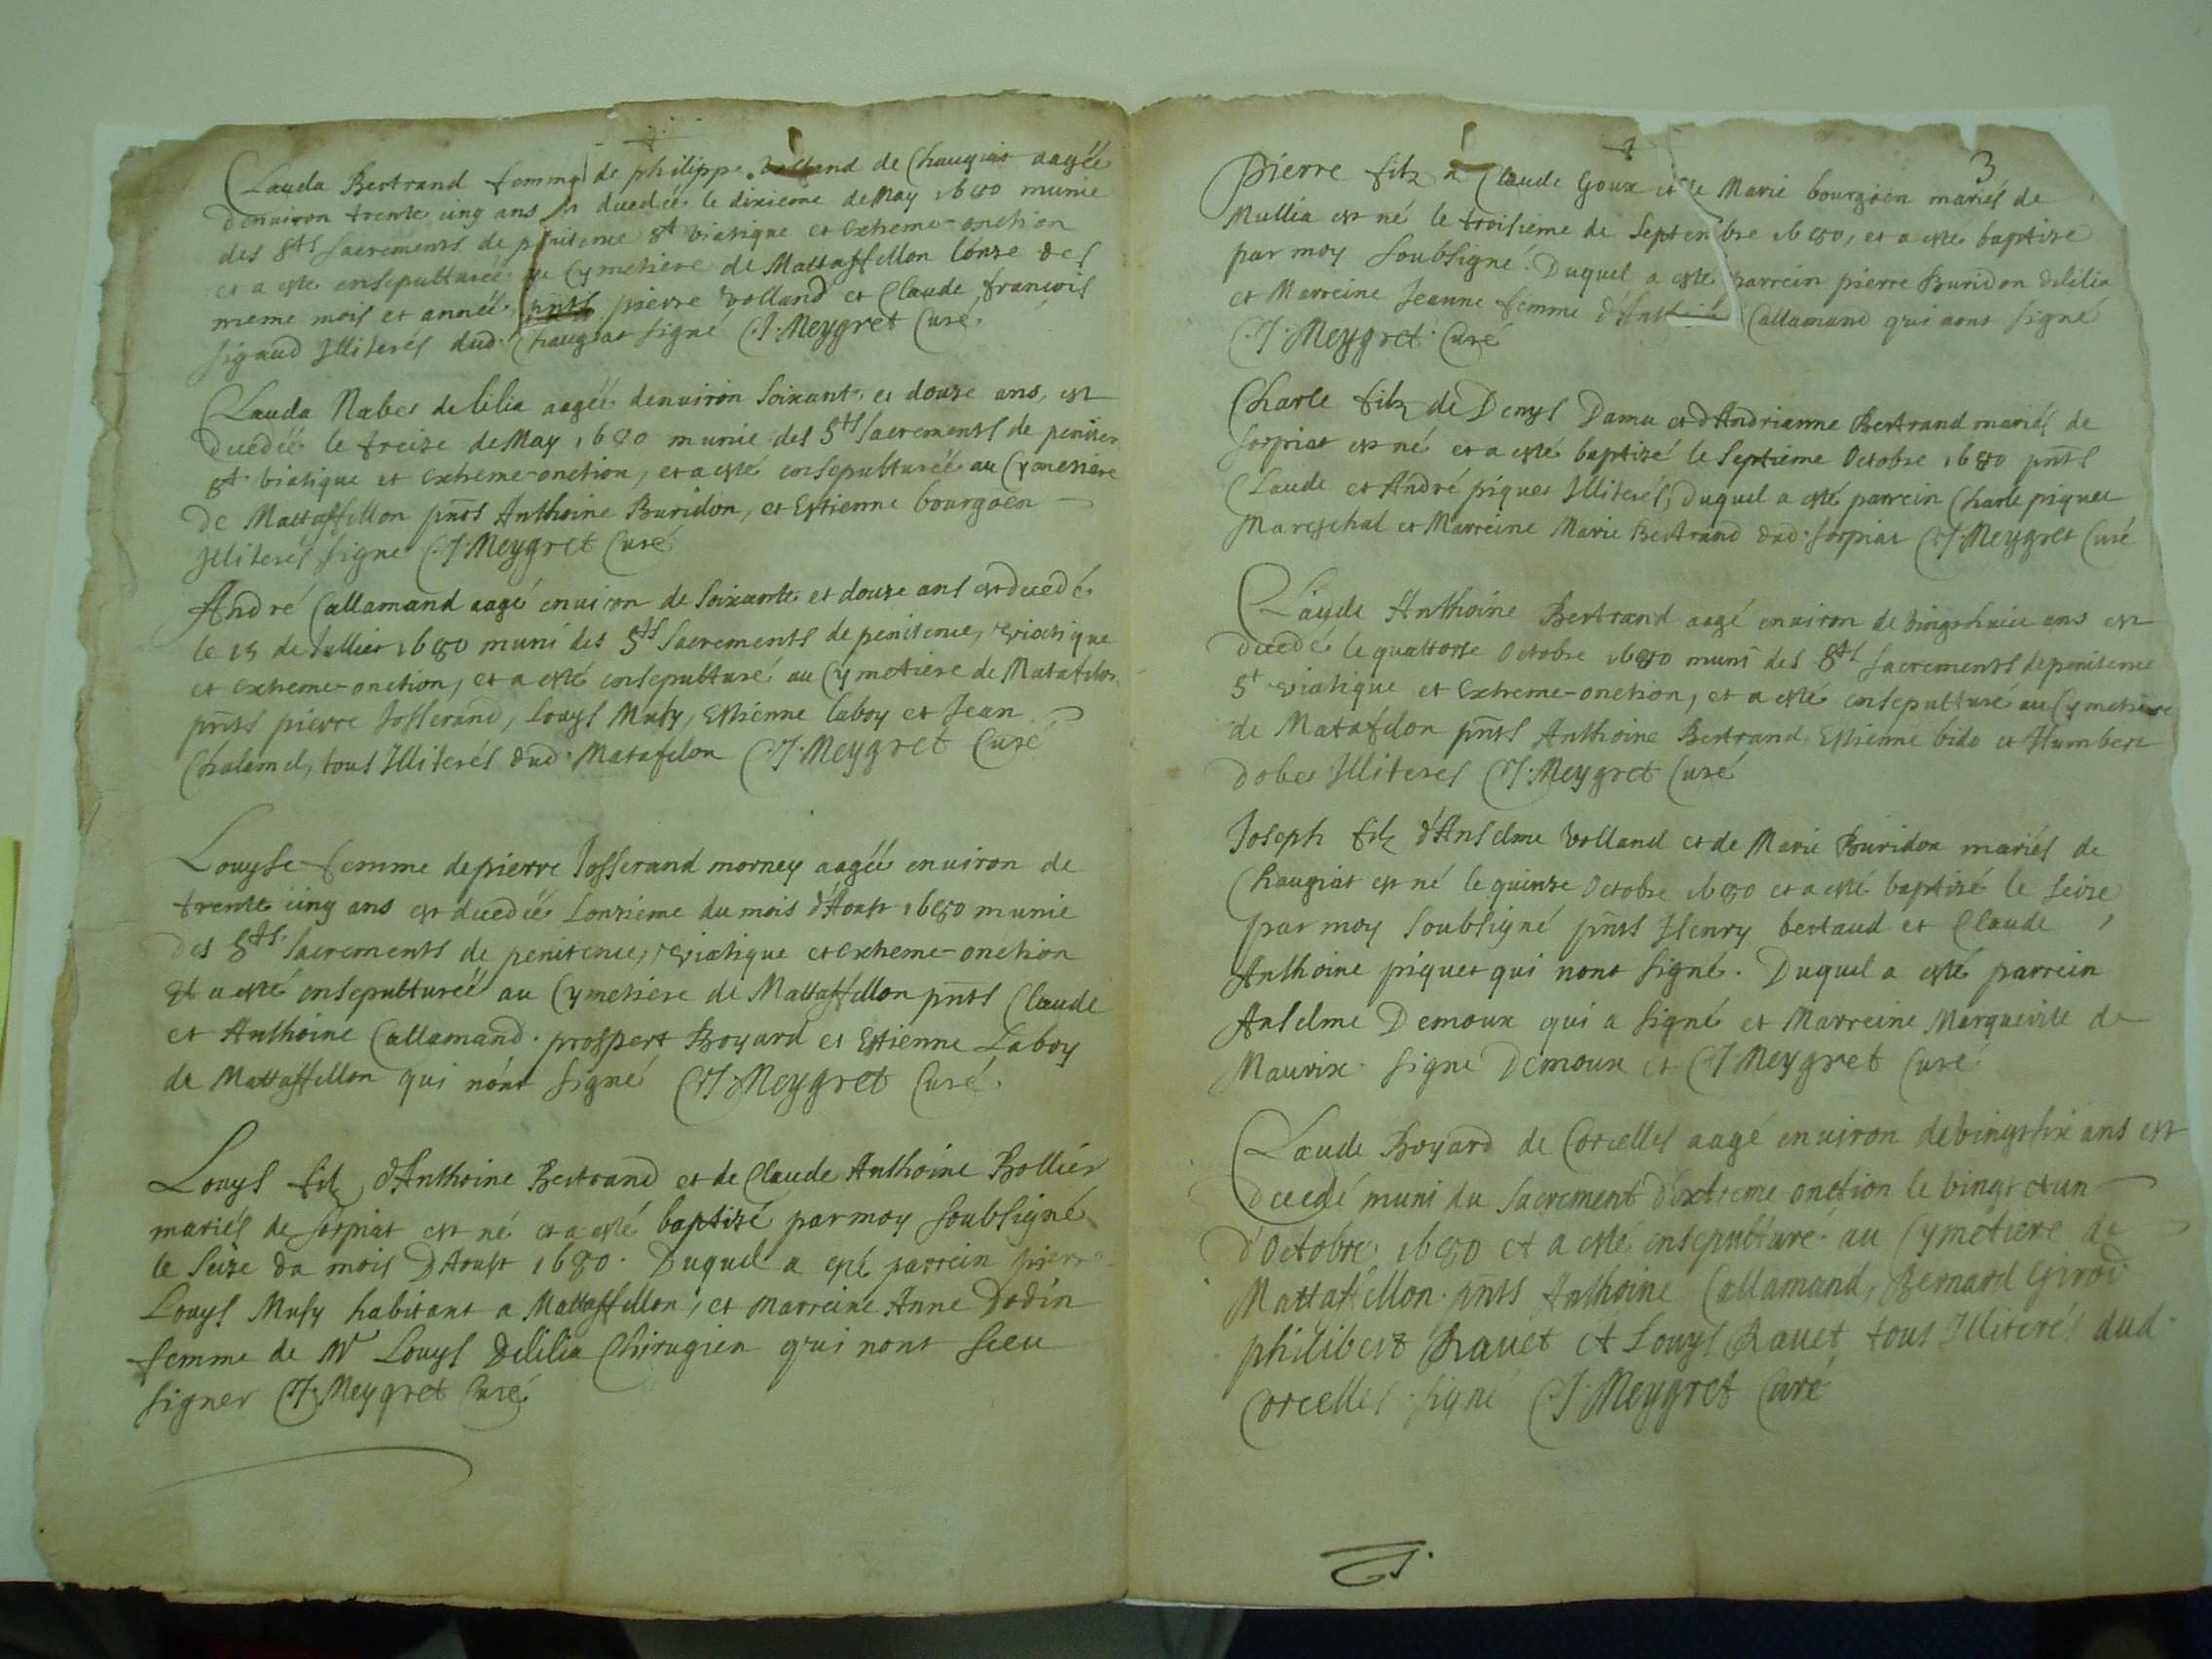 Clauda Bertrand femme de philippe Volland de Chaugiat aagéé
denuiron trente cinq ans decedéé le dixieme de May 1680 munie
des Sts Sacrements de penitence St Viatique et Extreme-onction
et a esté ensepulturéé Cymetiere de Mattaffellon lonze des
meme mois et année pnts pierre Volland et Claude francois
Sigaud Illiterés dud. Chaugiat Signé CJ. Meygret Curé.
Clauda Nabes de lilia aagéé denuiron Soixante et douze ans, est
decedéé le treize de May 1680 munie des Sts Sacrements de peniten
St. Viatique et Extreme-onction, et a esté ensepulturéé au Cymetiere
De Mattaffellon pnts Anthoine Buridon, et Estienne bourgoen
Illiterés Signe CJ. Meygret Curé
André Callamand aagé enuiron de Soixante et douze ans est decedé
le 15 de Jullier 1680 muni des Sts Sacrements de penitence, Viatique
et Extreme-onction, et a esté ensepulturé au Cymetiere de Matafelon
pnts pierre Josserand, Louys Musy, Estienne laboy et Jean
Chalamel, tous Illiterés dud. Matafelon CJ. Meygret Curé
Louyse femme de pierre Josserand morney aagéé enuiron de
trente cinq ans est decedéé Lonzieme du mois d'Aoust 1680 munie
des Sts. Sacrements de penitence, Viatique et extreme-onction
Et a esté ensepulturéé au Cymetiere de Mattaffellon pnts Claude
et Anthoine Callamand. prospert Boyard et Estienne Laboy
de Mattaffellon qui nónt Signé CJ. Meygret Curé.
Louys filz d'Anthoine Bertrand et de Claude Anthoine Bollier
mariés de Sorpiat est né et a esté baptizé par moy Soubsigné
le Seize du mois D'Aoust 1680. Duquel a esté parrein pierre
Louys Musy habitant a Mattaffellon, et marreine Anne Dodin
femme de Mr Louys Delilia Chirugien qui nont Sceu
Signer CJ. Meygret Curé
3
Pierre filz a Claude Goux et de Marie bourgoen mariés de
Mullia est né le troisieme de Septembre 1680, et a esté baptize
par moy Soubsigné. Duquel a esté parrein pierre Buridon delilia
et Marreine Jeanne femme d'Anthoine Callamand qui nont Signé
CJ. Meygret. Curé
Charle filz de Denys Dama et d'Andrianne Bertrand mariés de
Sorpiat est né et a esté baptizé le Septieme Octobre 1680 pnts
Claude et André piquet Illiterés, Duquel a esté parrein Charle piquet
Mareschal et Marreine Marie Bertrand dud. Sorpiat CJ. Meygret Curé
Claude Anthoine Bertrand aagé enuiron de vingt huict ans est
decedé le quattorse Octobre 1680 muni des Sts Sacrements de penitence
St Viatique et Extreme-onction, et a esté ensepulturé au Cymetiere
de Matafelon pnts Anthoine Bertrand, Estienne bido et Humbert
dobes Illiteres CJ. Meygret Curé
Joseph filz d'Anselme Volland et de Marie Buridon mariés de
Chaugiat est né le quinze Octobre 1680 et a esté baptizé le Seize
par moy Soubsigné pnts Henry bertaud et Claude
Anthoine piquet qui nont Signé. Duquel a esté parrein
Anselme Demoux qui a Signé et Marreine Marguerite de
Mauvix. Signe Demoux et CJ Meygret Curé
Claude Boyard de Corcelles aagé enuiron de vingt six ans est
decedé muni du Sacrement d'Extreme onction le vingt et un
d'Octobre 1680 et a esté ensepulturé au Cymetiere de
Mattafellon. pnts Anthoine Callamand, Bernard Girod
philibert Ravet et Louys Ravet tous Illiterés dud.
Corcelles Signé CJ. Meygret Curé